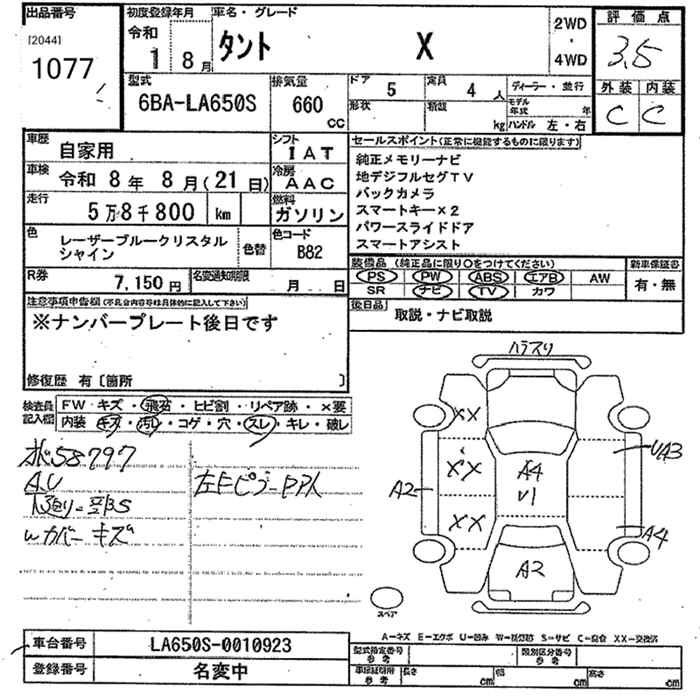 出品番号
[2044]
1077
初度登録年月
令和
1 8月
車名・グレード
タント X
2WD
・
4WD
評価点
3.5
外装 内装
C C
型式
6BA-LA650S
排気量
660
cc
ドア 5
定員 4人
形状
積載 kg
ディーラー・並行
モデル年式 年
ハンドル 左・右
車歴
自家用
シフト
IAT
車検
令和 8年 8月(21日)
冷房
AAC
走行
5万8千800 km
燃料
ガソリン
色
レーザーブルークリスタル
シャイン
色替
色コード
B82
R券
7,150円
名変通知期限
月 日
セールスポイント(正常に機能するものに限ります)
純正メモリーナビ
地デジフルセグTV
バックカメラ
スマートキー×2
パワースライドドア
スマートアシスト
装備品(純正品に限り○をつけてください)
PS PW ABS エアB AW
SR ナビ TV カワ
新車保証書
有・無
後日品
取説・ナビ取説
注意事項申告欄(不具合内容等は具体的に記入して下さい)
※ナンバープレート後日です
修復歴 有〔箇所 〕
検査員
記入欄
FW キズ・飛石・ヒビ割・リペア跡・×要
内装・キズ・汚レ・コゲ・穴・スレ・キレ・破レ
58797
AU
Wカバーキズ
左Fピラー
ハラスリ
XX
XX
XX
A4
U1
UA3
A2
A4
A2
スペア
A-キズ E-エクボ U-凹み W-波板跡 S-サビ C-腐食 XX-交換済
車台番号
LA650S-0010923
登録番号
名変中
型式指定番号
参考
類別区分番号
参考
車検証期限
参考
長さ cm
幅 cm
高さ cm